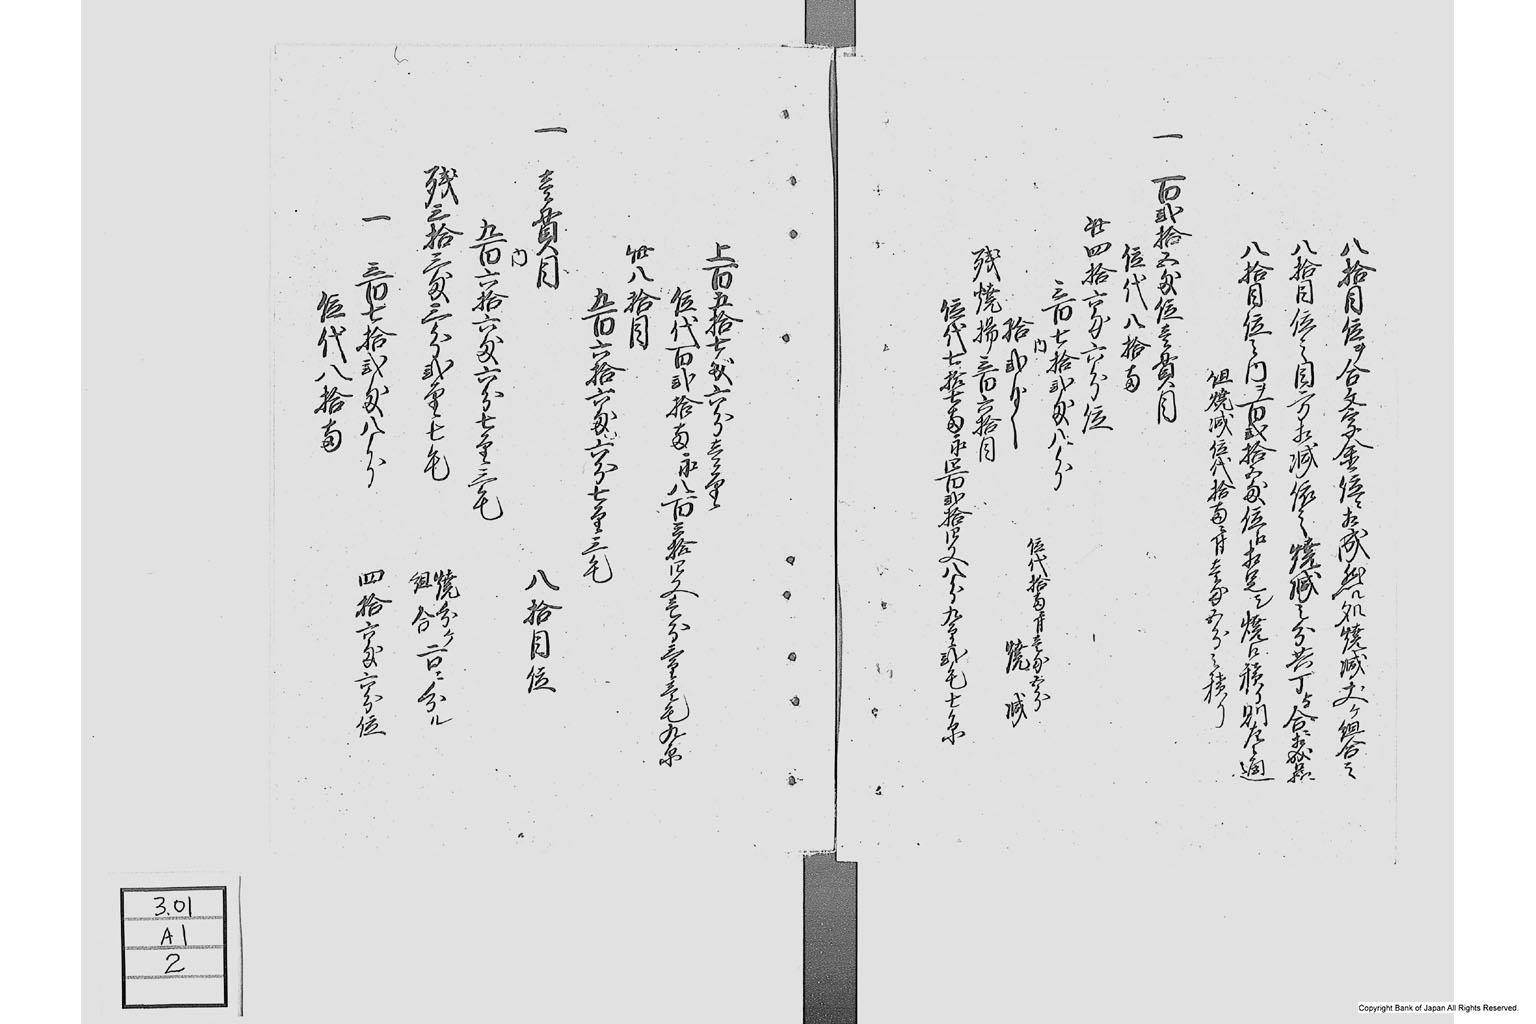 八拾目位ヲ合文字金位ニ相成然ル処焼減丈ケ組合之
八拾目位之目方相減依之焼減之分共丁与合相成候
八拾目位之内ヲ百弐拾五匁位江相足し焼口積り則左之通
但焼減位代拾両ニ付壱匁五分之積り
一 百弐拾五匁位壱貫目
位代八拾両
此四拾六匁六分位
三百七拾弐匁八分
内
拾弐匁 位代拾両ニ付壱匁五分 焼減
残焼揚三百六拾目
位代七拾七両永四百弐拾四文八分九厘弐毛七糸
上百五拾七匁六分壱厘
位代百弐拾両永八百三拾四文壱分三厘壱毛九糸
此八拾目
九百六拾六匁六分七厘三毛
一 壱貫目 八拾目位
内
九百六拾六匁六分七厘三毛
残三拾三匁三分弐厘七毛 焼分ケ組合二口ニ分ル
一 三百七拾弐匁八分 四拾六匁六分位
位代八拾両
3.01
A1
2
Copyright Bank of Japan All Rights Reserved.